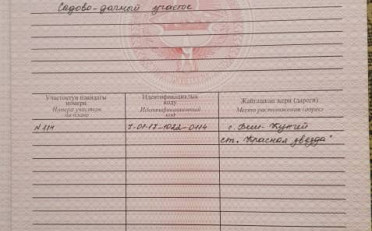 Садово-дачный участок
Участоктун пландагы номери
Номера участков на плане
Идентификациялык коду
Идентификационный код
Жайгашкан жери (дареги)
Место расположения (адрес)
N 114
г. Биш-Кунгей
ст. "Красная звезда"